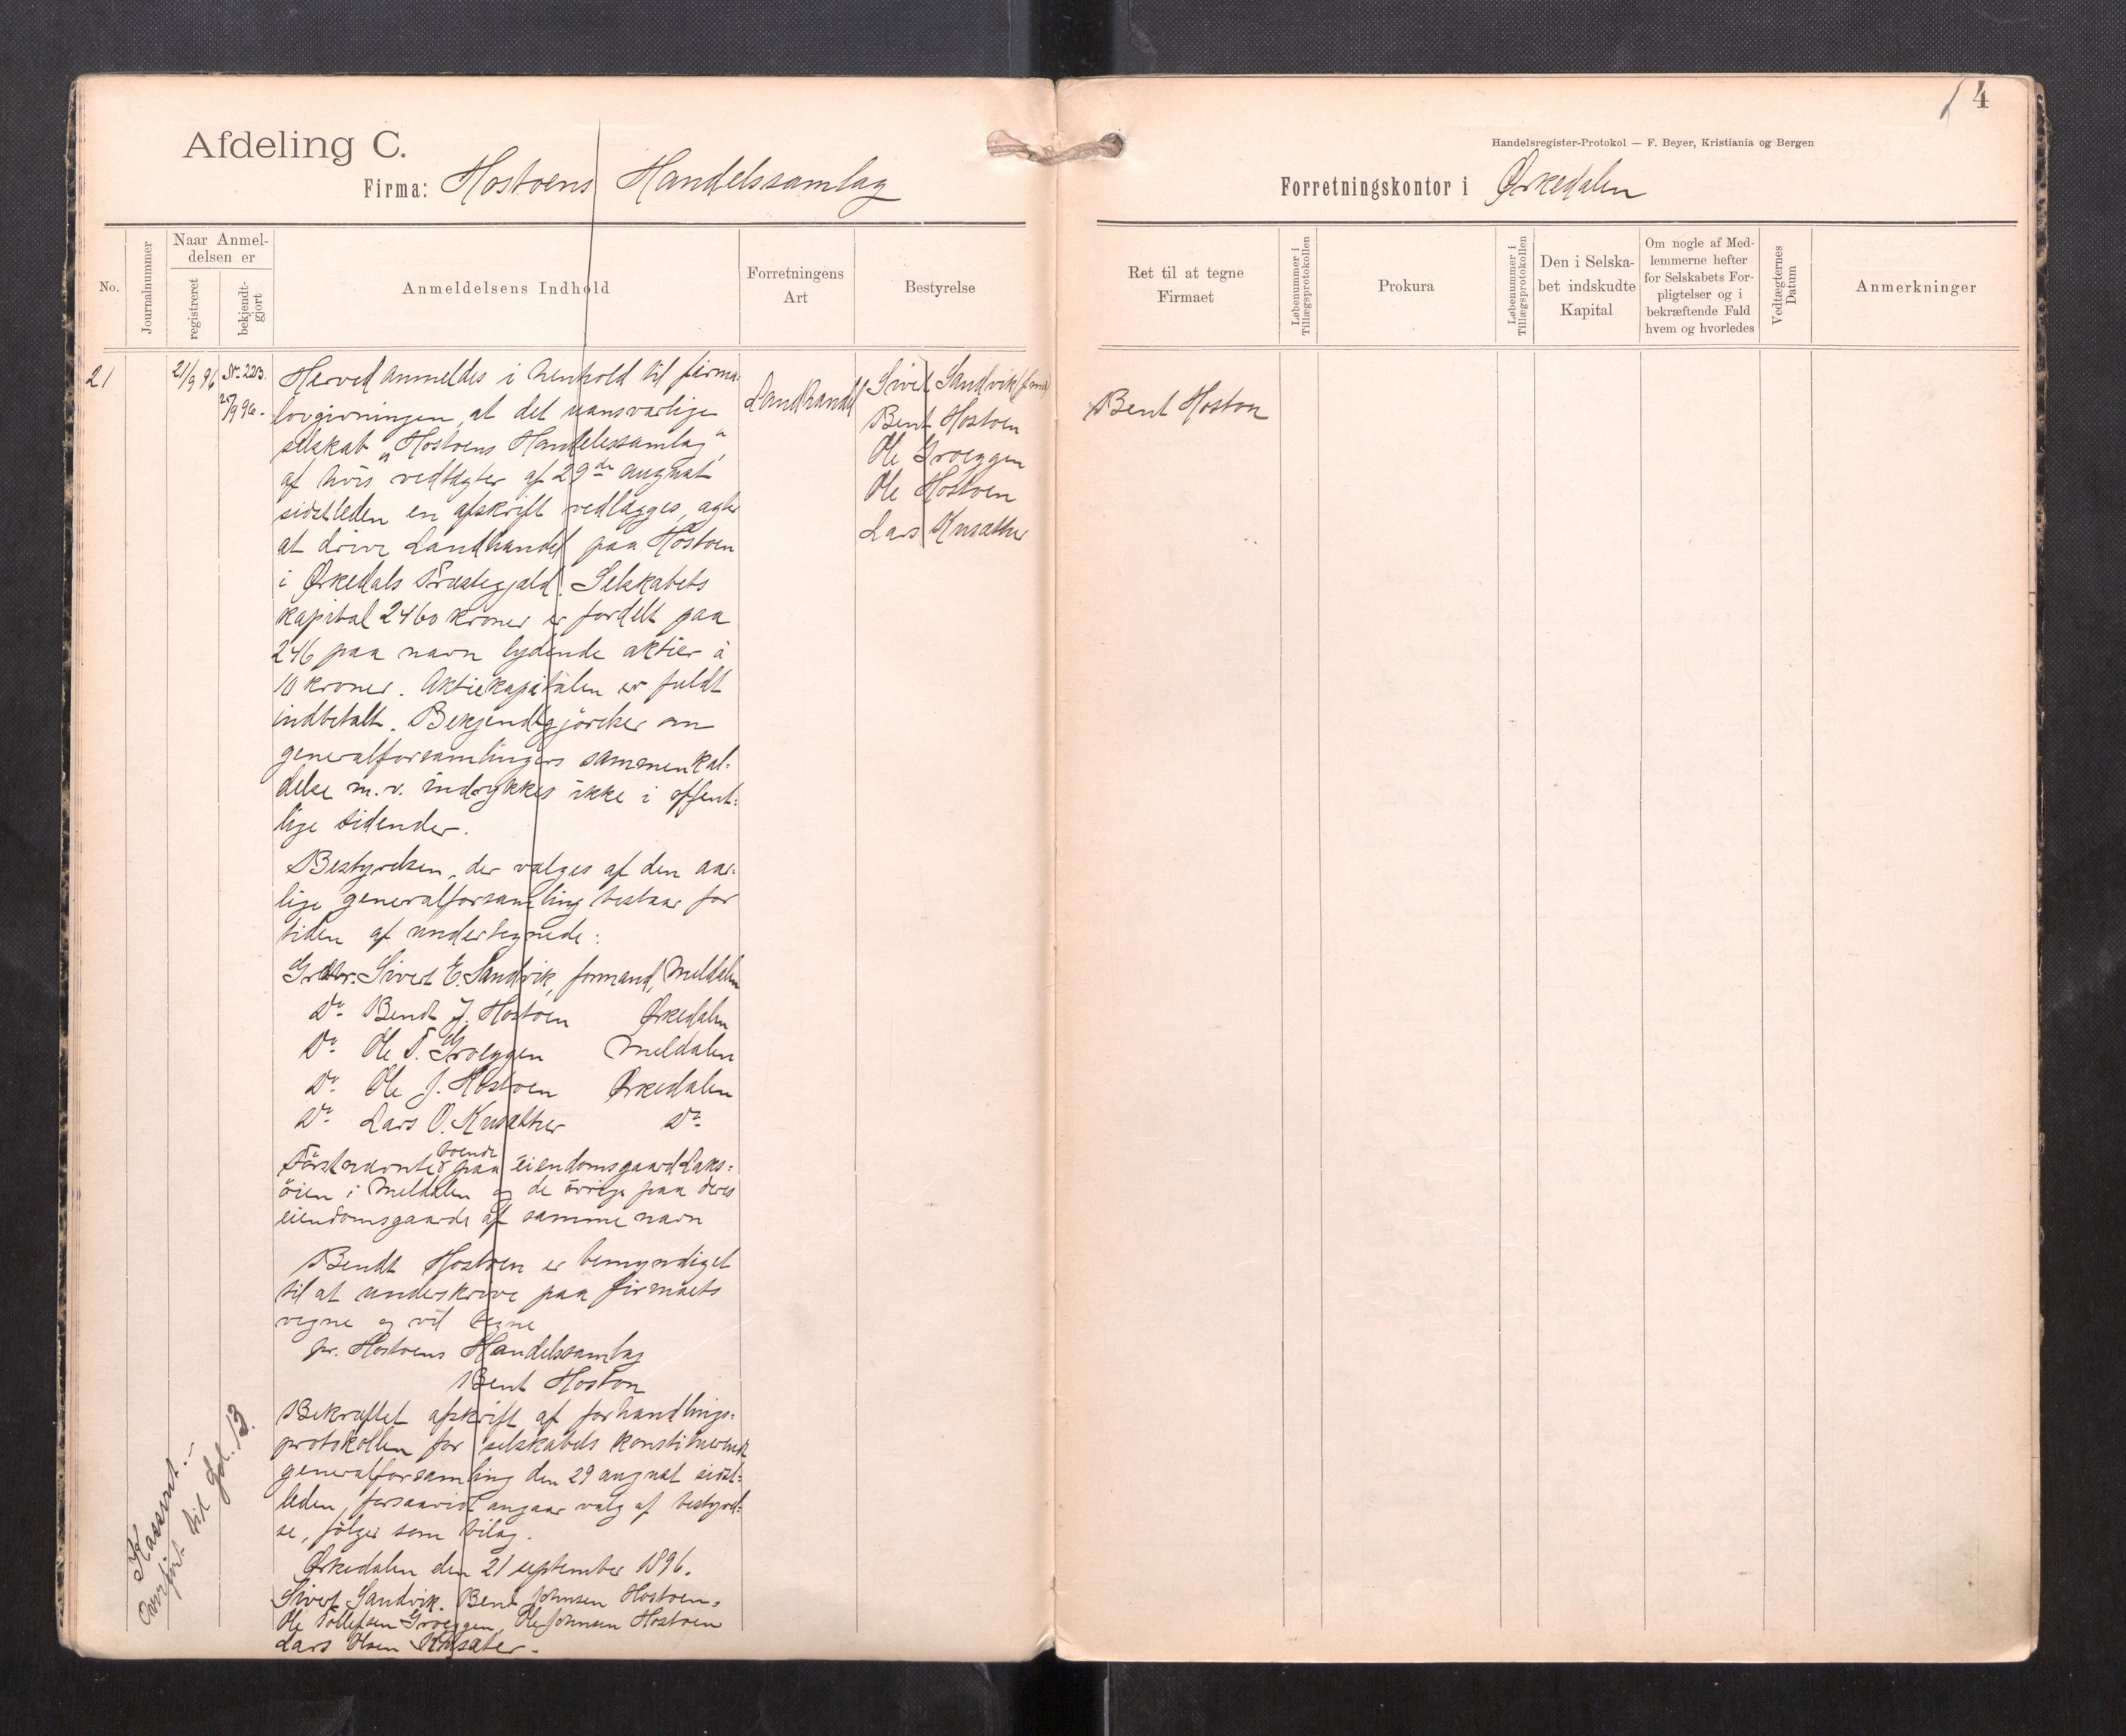 4
Afdeling C.
Handelsregister-Protokol — F. Beyer, Kristiania og Bergen
Firma: Hostoens Handelssamlag
Forretningskontor i Ørkedalen
No.
Journalnummer
Naar Anmel-
delsen er
registreret
bekjendt-
gjort
Anmeldelsens Indhold
Forretningens
Art
Bestyrelse
Ret til at tegne
Firmaet
Løbenummer i
Tillægsprotokollen
Prokura
Løbenummer i
Tillægsprotokollen
Den i Selska-
bet indskudte
Kapital
Om nogle af Med-
lemmerne hefter
for Selskabets For-
pligtelser og i
bekræftende Fald
hvem og hvorledes
Vedtægternes
Datum
Anmerkninger
21
21/9 96
Nr. 223.
25/9 96.
Herved anmeldes i henhold til firma-
lovgivningen, at det uansvarlige
selskab „Hostoens Handelssamlag",
af hvis vedtægter af 29de august
sidstleden en afskrift vedlægges, agter
at drive Landhandel paa Hostoen
i Ørkedals Præstegjæld. Selskabets
kapital 2460 kroner er fordelt paa
246 paa navn lydende aktier à
10 kroner. Aktiekapitalen er fuldt
indbetalt. Bekjendtgjørelser om
generalforsamlingers sammenkal-
delse m.v. indrykkes ikke i offent-
lige tidender.
Bestyrelsen, der vælges af den aar-
lige generalforsamling bestaar for
tiden af undertegnede:
Grdbr. Sivert E. Sandvik, formand, Meldalen
Do. Bendt J. Hostoen Ørkedalen
Do. Ole T. Groeggen Meldalen
Do. Ole J. Hostoen Ørkedalen
Do. Lars O. Knsæther Do.
Førstnævnte boende paa eiendomsgaard Laks-
øien i Meldalen og de øvrige paa deres
eiendomsgaarde af samme navn
Bendt Hostoen er bemyndiget
til at underskrive paa firmaets
vegne og vil tegne
pr. Hostoens Handelssamlag
Bent Hoston
Bekræftet afskrift af forhandlings-
protokollen for selskabets konstituerende
generalforsamling den 29 august sidst-
leden, forsaavidt angaar valg af bestyrel-
se, følger som bilag.
Ørkedalen den 21 september 1896.
Sivert Sandvik. Bent Johnsen Hostoen.
Ole Tollefsen Groeggen, Ole Johnsen Hostoen
Lars Olsen Knsæter.
Landhandel
Sivert Sandvik (fmd)
Bent Hostoen
Ole Groeggen
Ole Hostoen
Lars Knsæther
Bent Hoston
Kasseret.
Overført til Fol. 13.